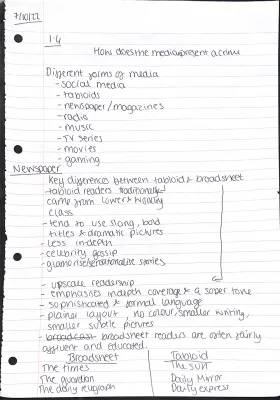 7/10/22
1.4
How does the media present a crime
Different forms of media
- social media
- tabloids
- newspaper/magazines
- radio
- music
- TV series
- movies
- gaming
Newspaper
Key differences between tabloid & broadsheet
- tabloid readers traditionally
came from lower & working
class
- tend to use slang, bold
titles & dramatic pictures
- less indepth
- celebrity gossip
- glamorise/sensationalise stories
- upscale readership
- emphasises indepth coverage & a soper tone
- sophisticated & formal language
- plainer layout, no colour, smaller writing,
smaller subtle pictures
- broadcast broadsheet readers are often fairly
affluent and educated.
Broadsheet Tabloid
The times The sun
The guardian Daily Mirror
The daily telugraph Daily express